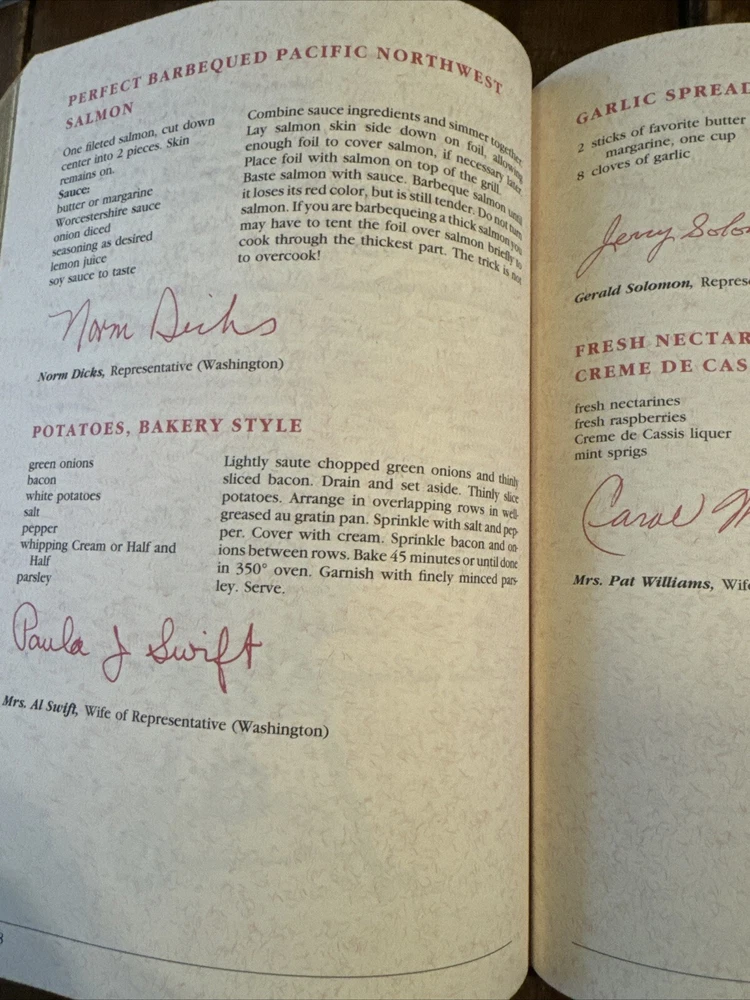 PERFECT BARBEQUED PACIFIC NORTHWEST
SALMON
One fileted salmon, cut down
center into 2 pieces. Skin
remains on.
Sauce:
butter or margarine
Worcestershire sauce
onion diced
seasoning as desired
lemon juice
soy sauce to taste
Combine sauce ingredients and simmer together.
Lay salmon skin side down on foil, allowing
enough foil to cover salmon, if necessary later.
Place foil with salmon on top of the grill.
Baste salmon with sauce. Barbeque salmon until
it loses its red color, but is still tender. Do not turn
salmon. If you are barbequeing a thick salmon you
may have to tent the foil over salmon briefly to
cook through the thickest part. The trick is not
to overcook!
Norm Dicks
Norm Dicks, Representative (Washington)
POTATOES, BAKERY STYLE
green onions
bacon
white potatoes
salt
pepper
whipping Cream or Half and
Half
parsley
Lightly saute chopped green onions and thinly
sliced bacon. Drain and set aside. Thinly slice
potatoes. Arrange in overlapping rows in well-
greased au gratin pan. Sprinkle with salt and pep-
per. Cover with cream. Sprinkle bacon and on-
ions between rows. Bake 45 minutes or until done
in 350° oven. Garnish with finely minced pars-
ley. Serve.
Paula J Swift
Mrs. Al Swift, Wife of Representative (Washington)
8
GARLIC SPREAD
2 sticks of favorite butter
margarine, one cup
8 cloves of garlic
Jerry Solo
Gerald Solomon, Represe
FRESH NECTAR
CREME DE CAS
fresh nectarines
fresh raspberries
Creme de Cassis liquer
mint sprigs
Carol
Mrs. Pat Williams, Wife